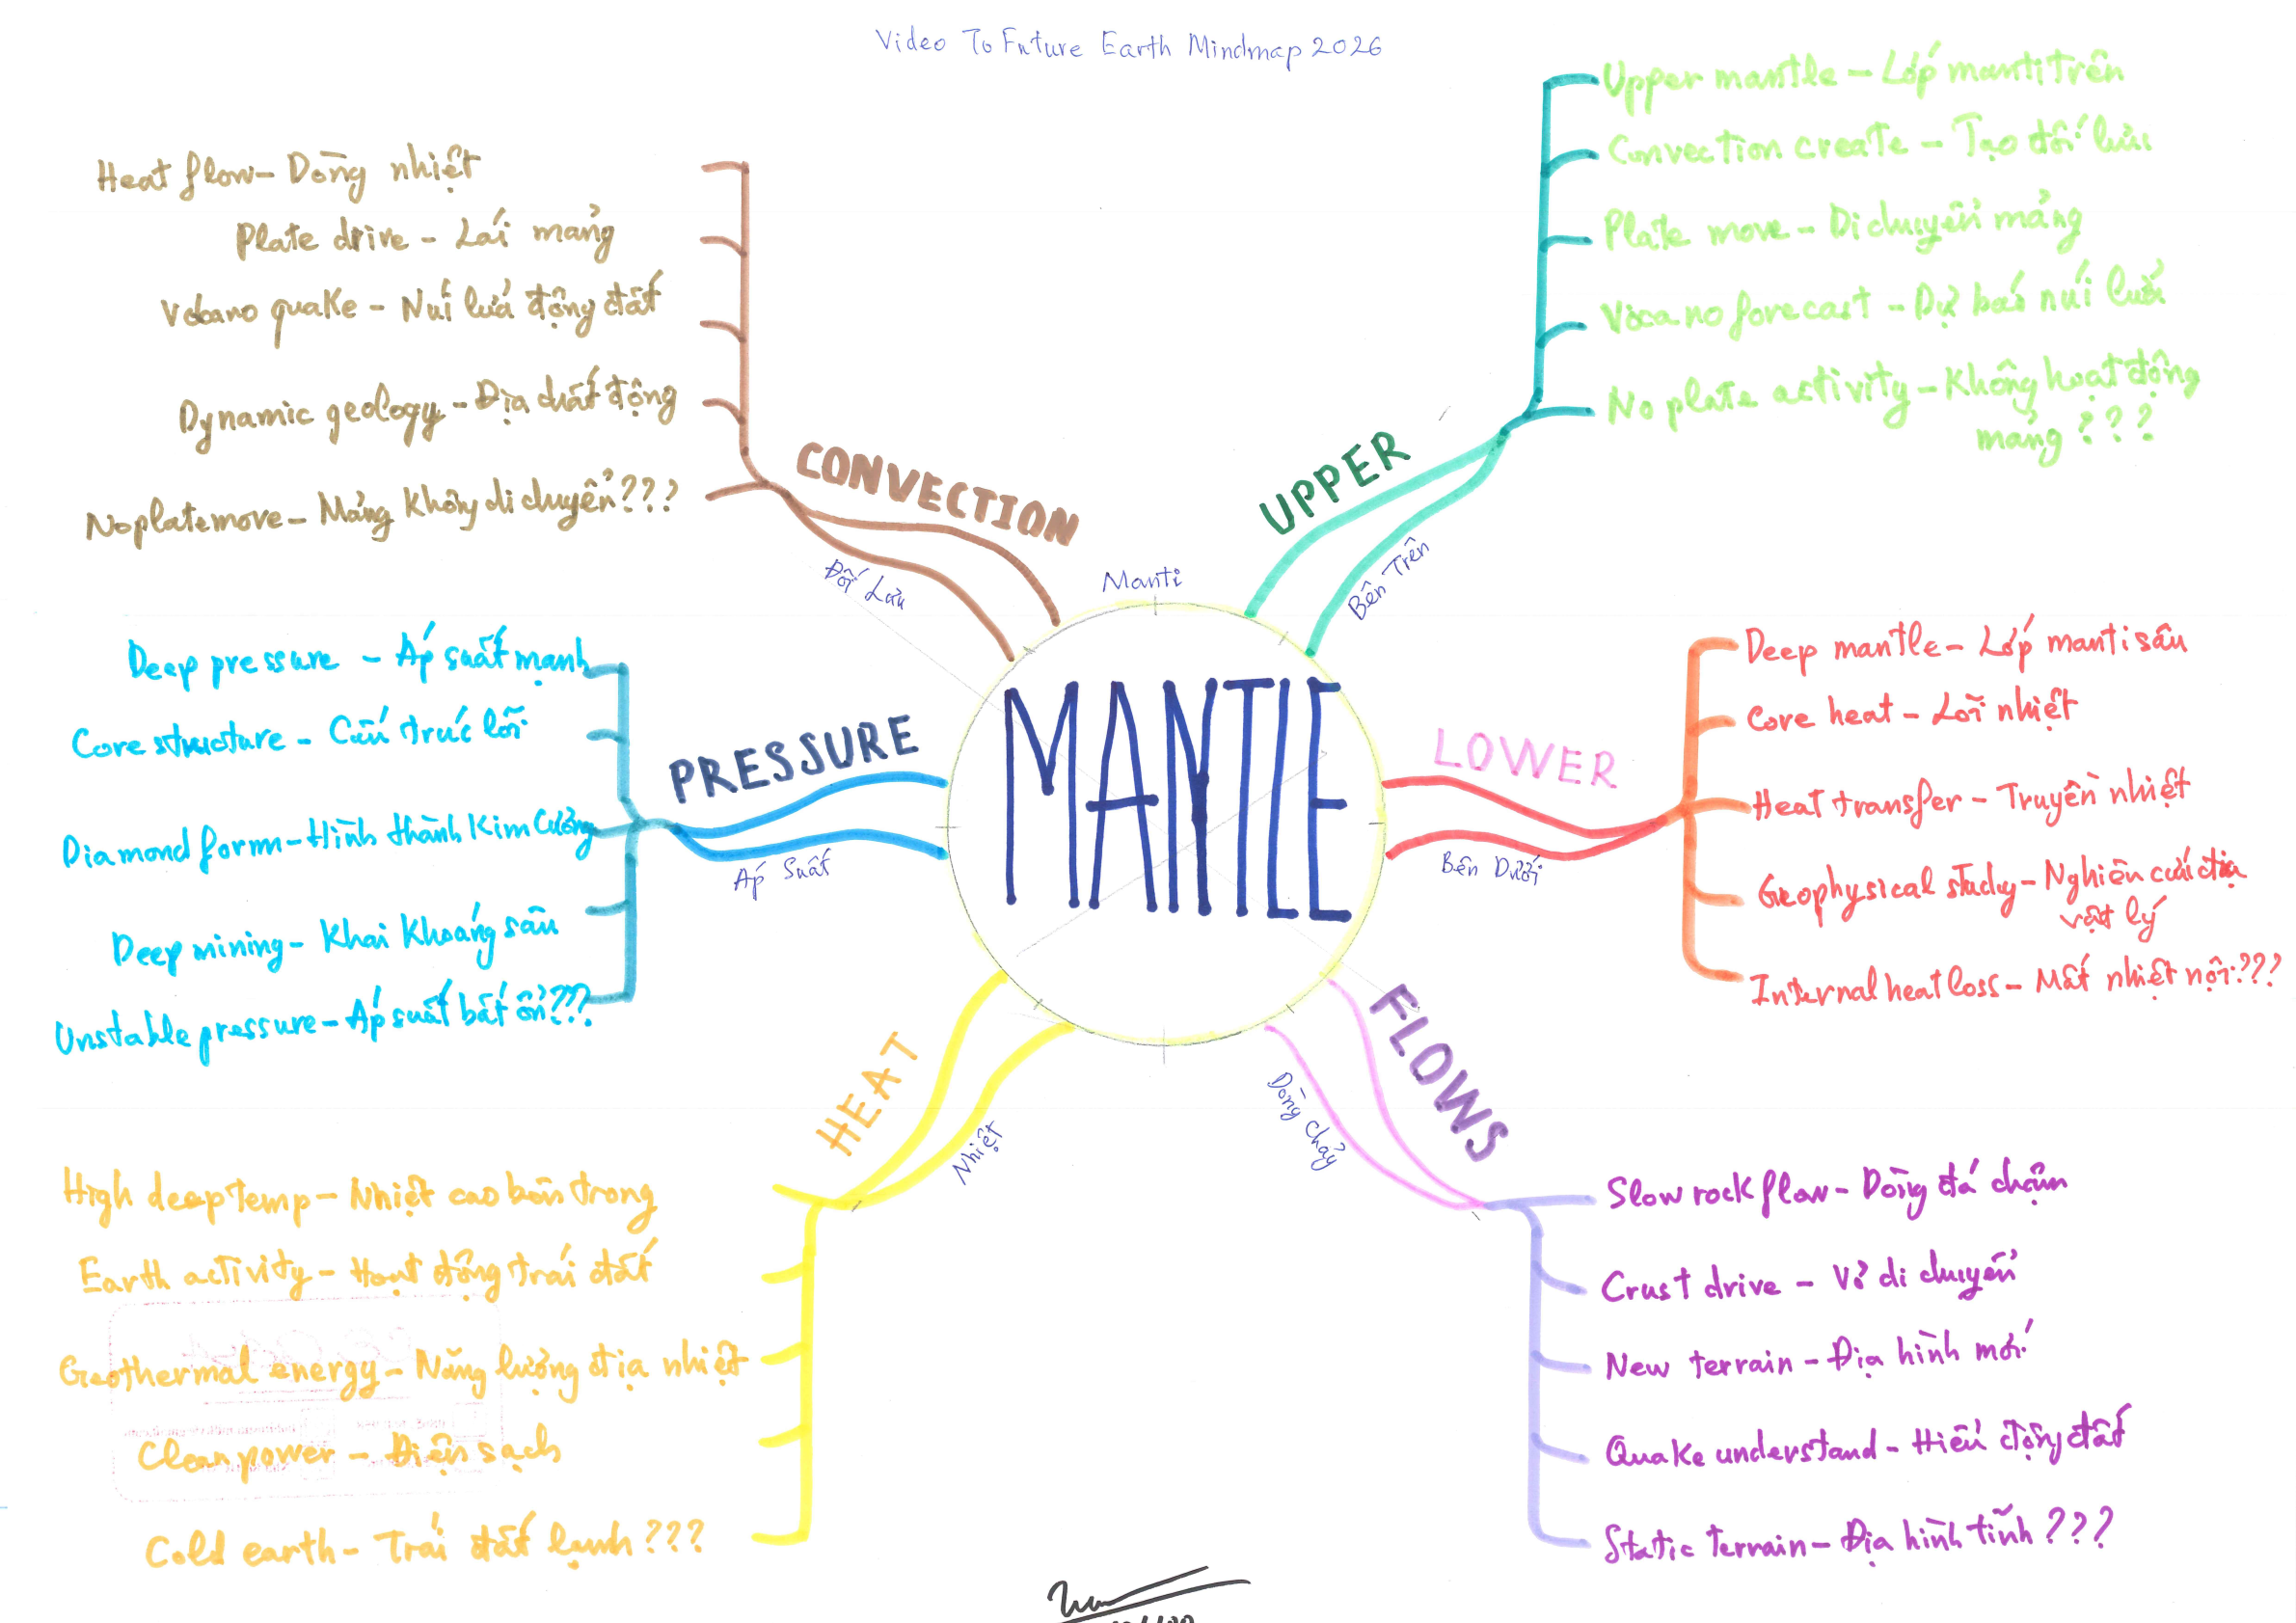 Video To Future Earth Mindmap 2026
MANTLE
Manti
UPPER
Bên Trên
Upper mantle – Lớp manti trên
Convection create – Tạo đối lưu
Plate move – Di chuyển mảng
Vocano forecast – Dự báo núi lửa
No plate activity – Không hoạt động
mảng ???
LOWER
Bên Dưới
Deep mantle – Lớp manti sâu
Core heat – Lõi nhiệt
Heat transfer – Truyền nhiệt
Geophysical study – Nghiên cứu địa
vật lý
Internal heat loss – Mất nhiệt nội ???
FLOWS
Dòng chảy
Slow rock flow – Dòng đá chậm
Crust drive – Vỏ di chuyển
New terrain – Địa hình mới
Quake understand – Hiểu động đất
Static terrain – Địa hình tĩnh ???
HEAT
Nhiệt
High deep temp – Nhiệt cao bên trong
Earth activity – Hoạt động trái đất
Geothermal energy – Năng lượng địa nhiệt
Clean power – Điện sạch
Cold earth – Trái đất lạnh ???
PRESSURE
Áp Suất
Deep pressure – Áp suất mạnh
Core structure – Cấu trúc lõi
Diamond form – Hình thành Kim Cương
Deep mining – Khai Khoáng sâu
Unstable pressure – Áp suất bất ổn ???
CONVECTION
Đối Lưu
Heat flow – Dòng nhiệt
Plate drive – Lái mảng
Volcano quake – Núi lửa động đất
Dynamic geology – Địa chất động
No plate move – Mảng Không di chuyển ???